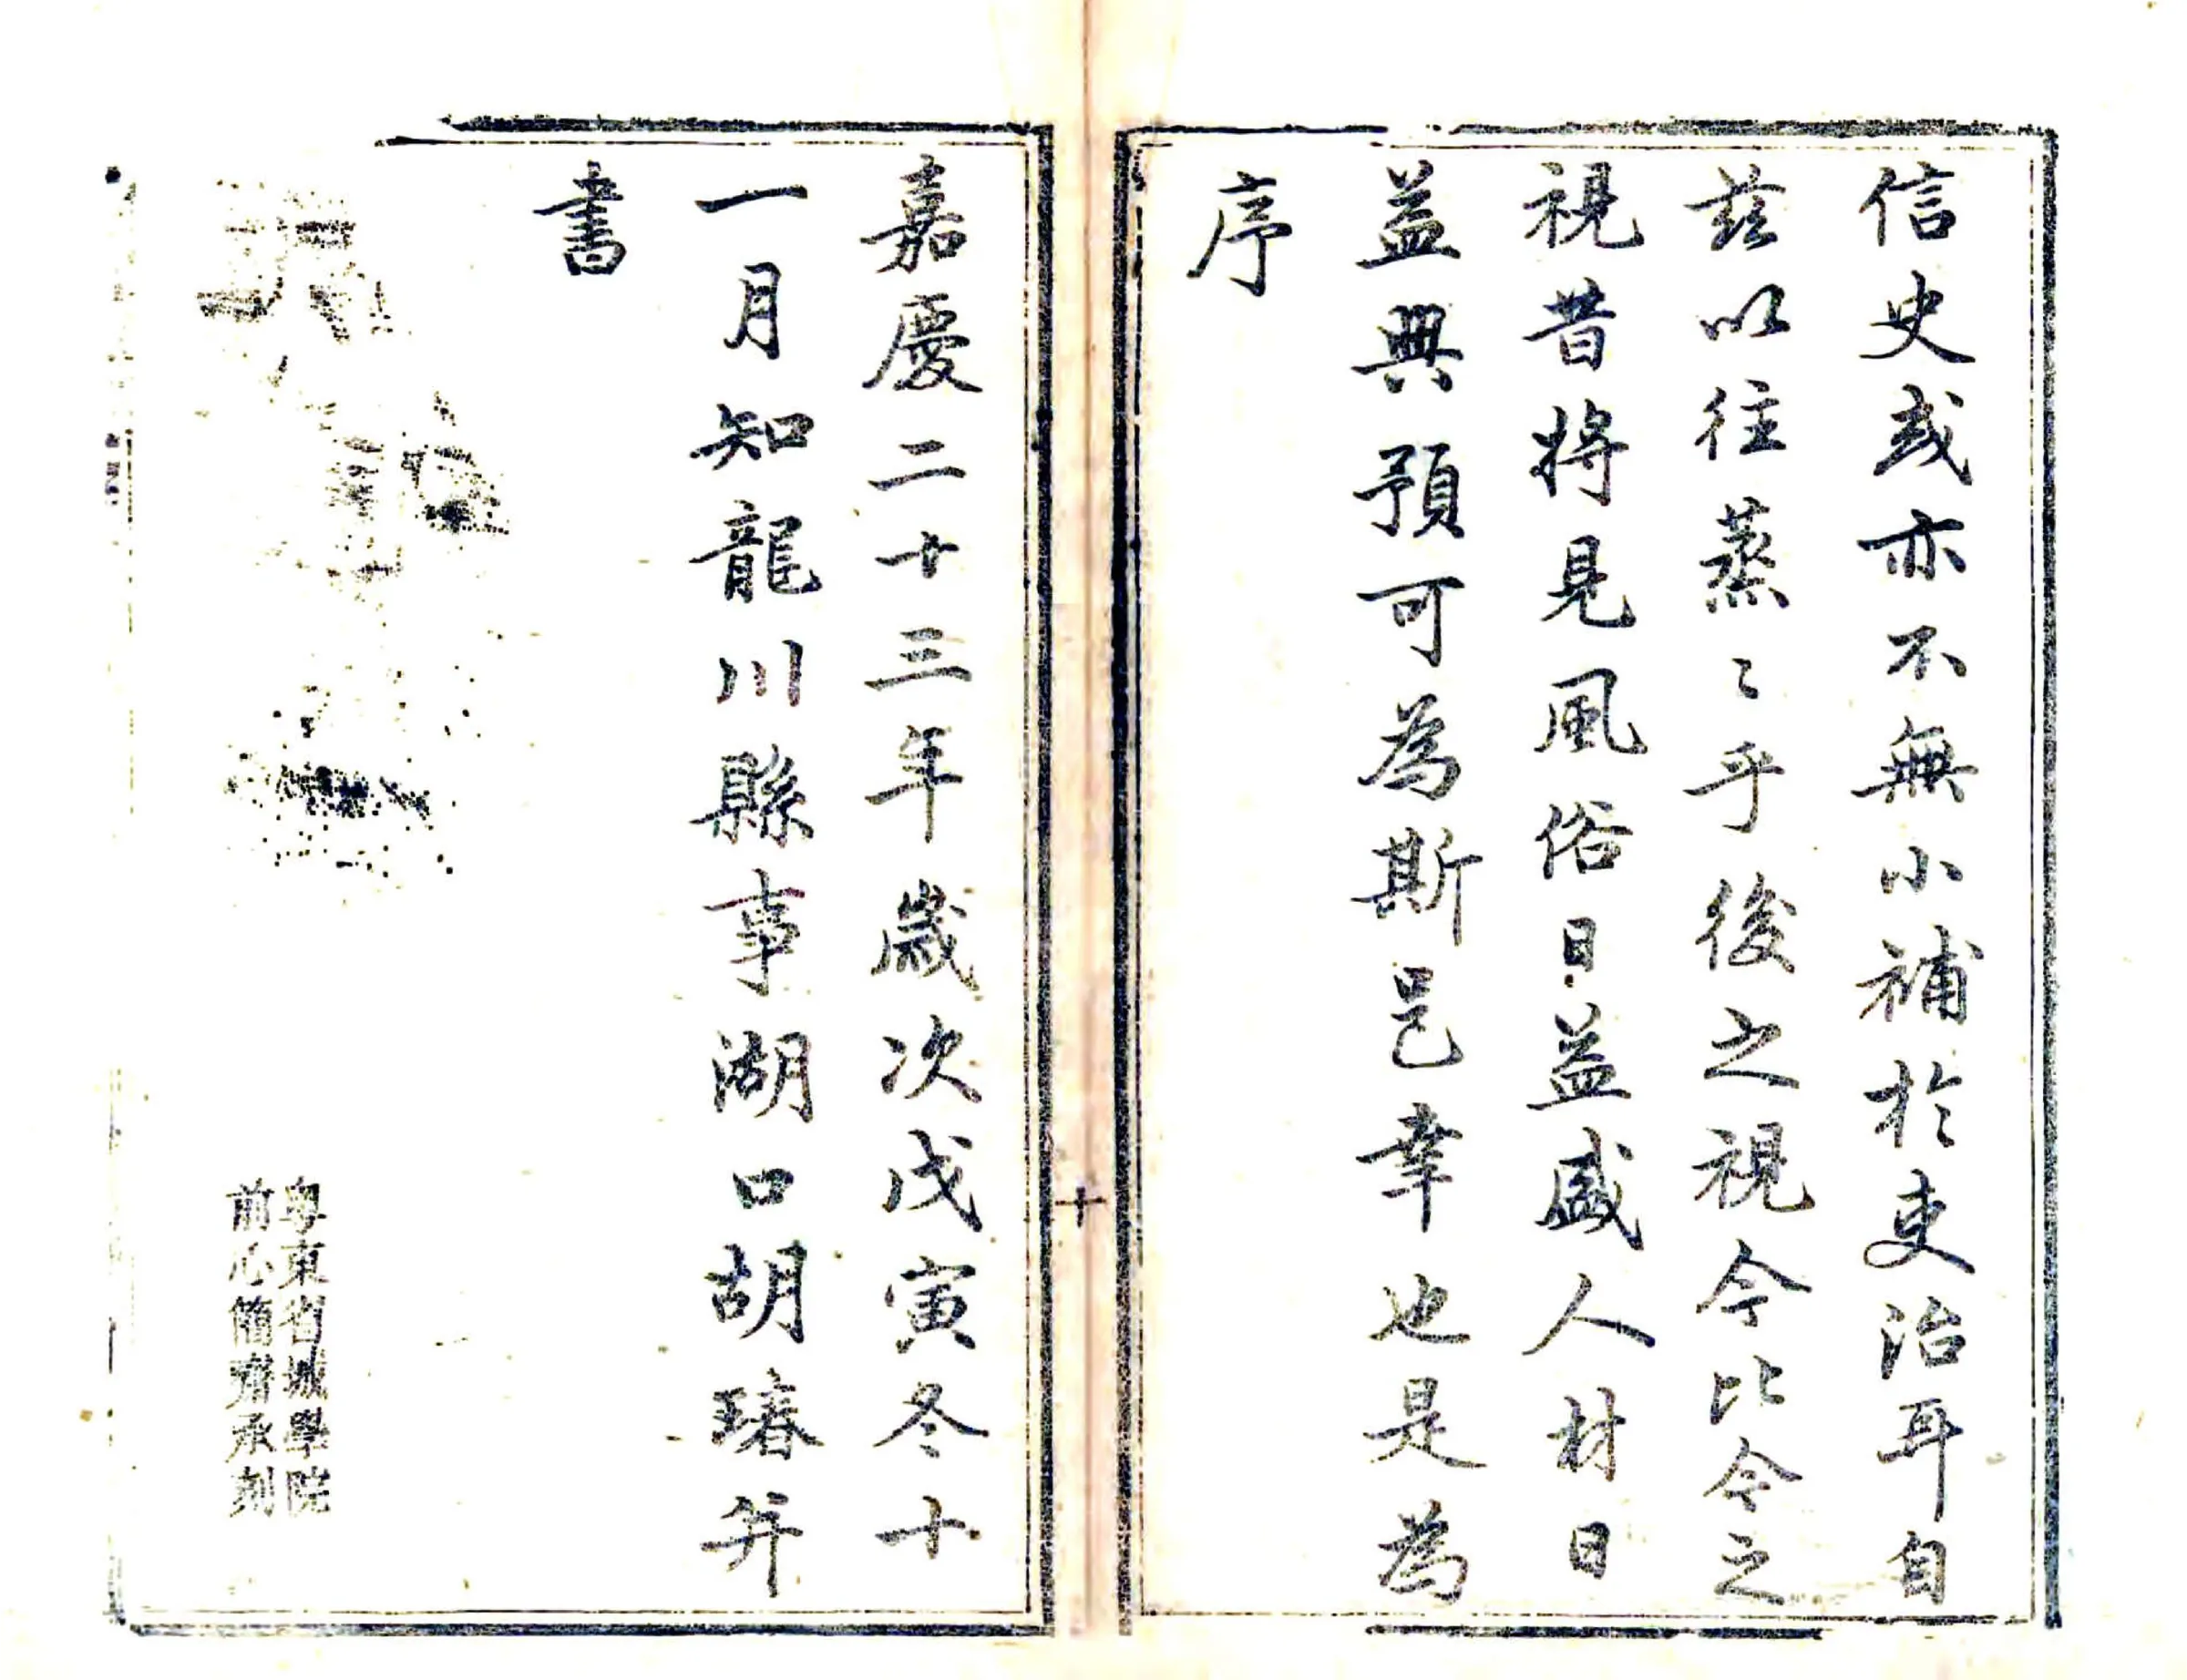 信史或亦不無小補於吏治耳自
茲以往蒸〻乎後之視今比今之
視昔將見風俗日益盛人材日
益興預可為斯邑幸也是為
序
嘉慶二十三年歲次戊寅冬十
一月知龍川縣事湖口胡瑃並
書
十
粵東省城學院
前心簡齋承刻